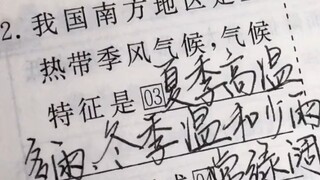 2.我国南方地区是
热带季风气候,气候
特征是03夏季高温
多雨、冬季温和少雨
常绿阔